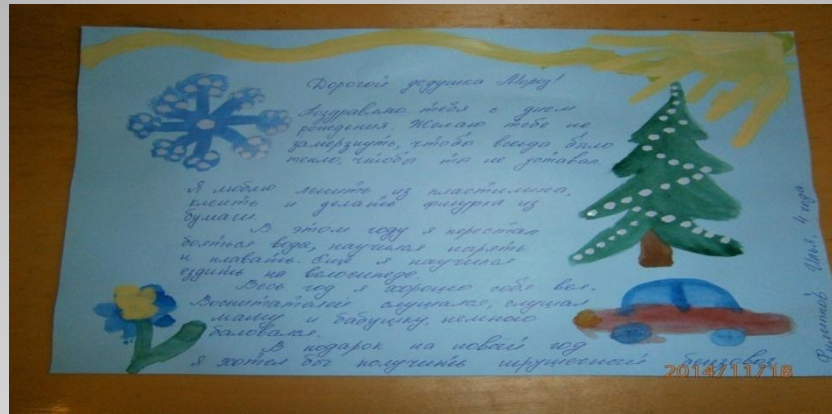 Дорогой дедушка Мороз!
Поздравляю тебя с днем
рождения. Желаю тебе не
замерзнуть, чтобы всегда было
тепло, чтобы ты не уставал.
Я люблю лепить из пластилина,
клеить и делать фигурки из
бумаги.
В этом году я перестал
бояться воды, научился нырять
и плавать. Ещё я научился
ездить на велосипеде.
Весь год я хорошо себя вел.
Воспитателей слушался, слушал
маму и бабушку, немного
баловался.
В подарок на новый год
я хотел бы получить игрушечный бензовоз.
Илья, 4 года.
2014/11/18